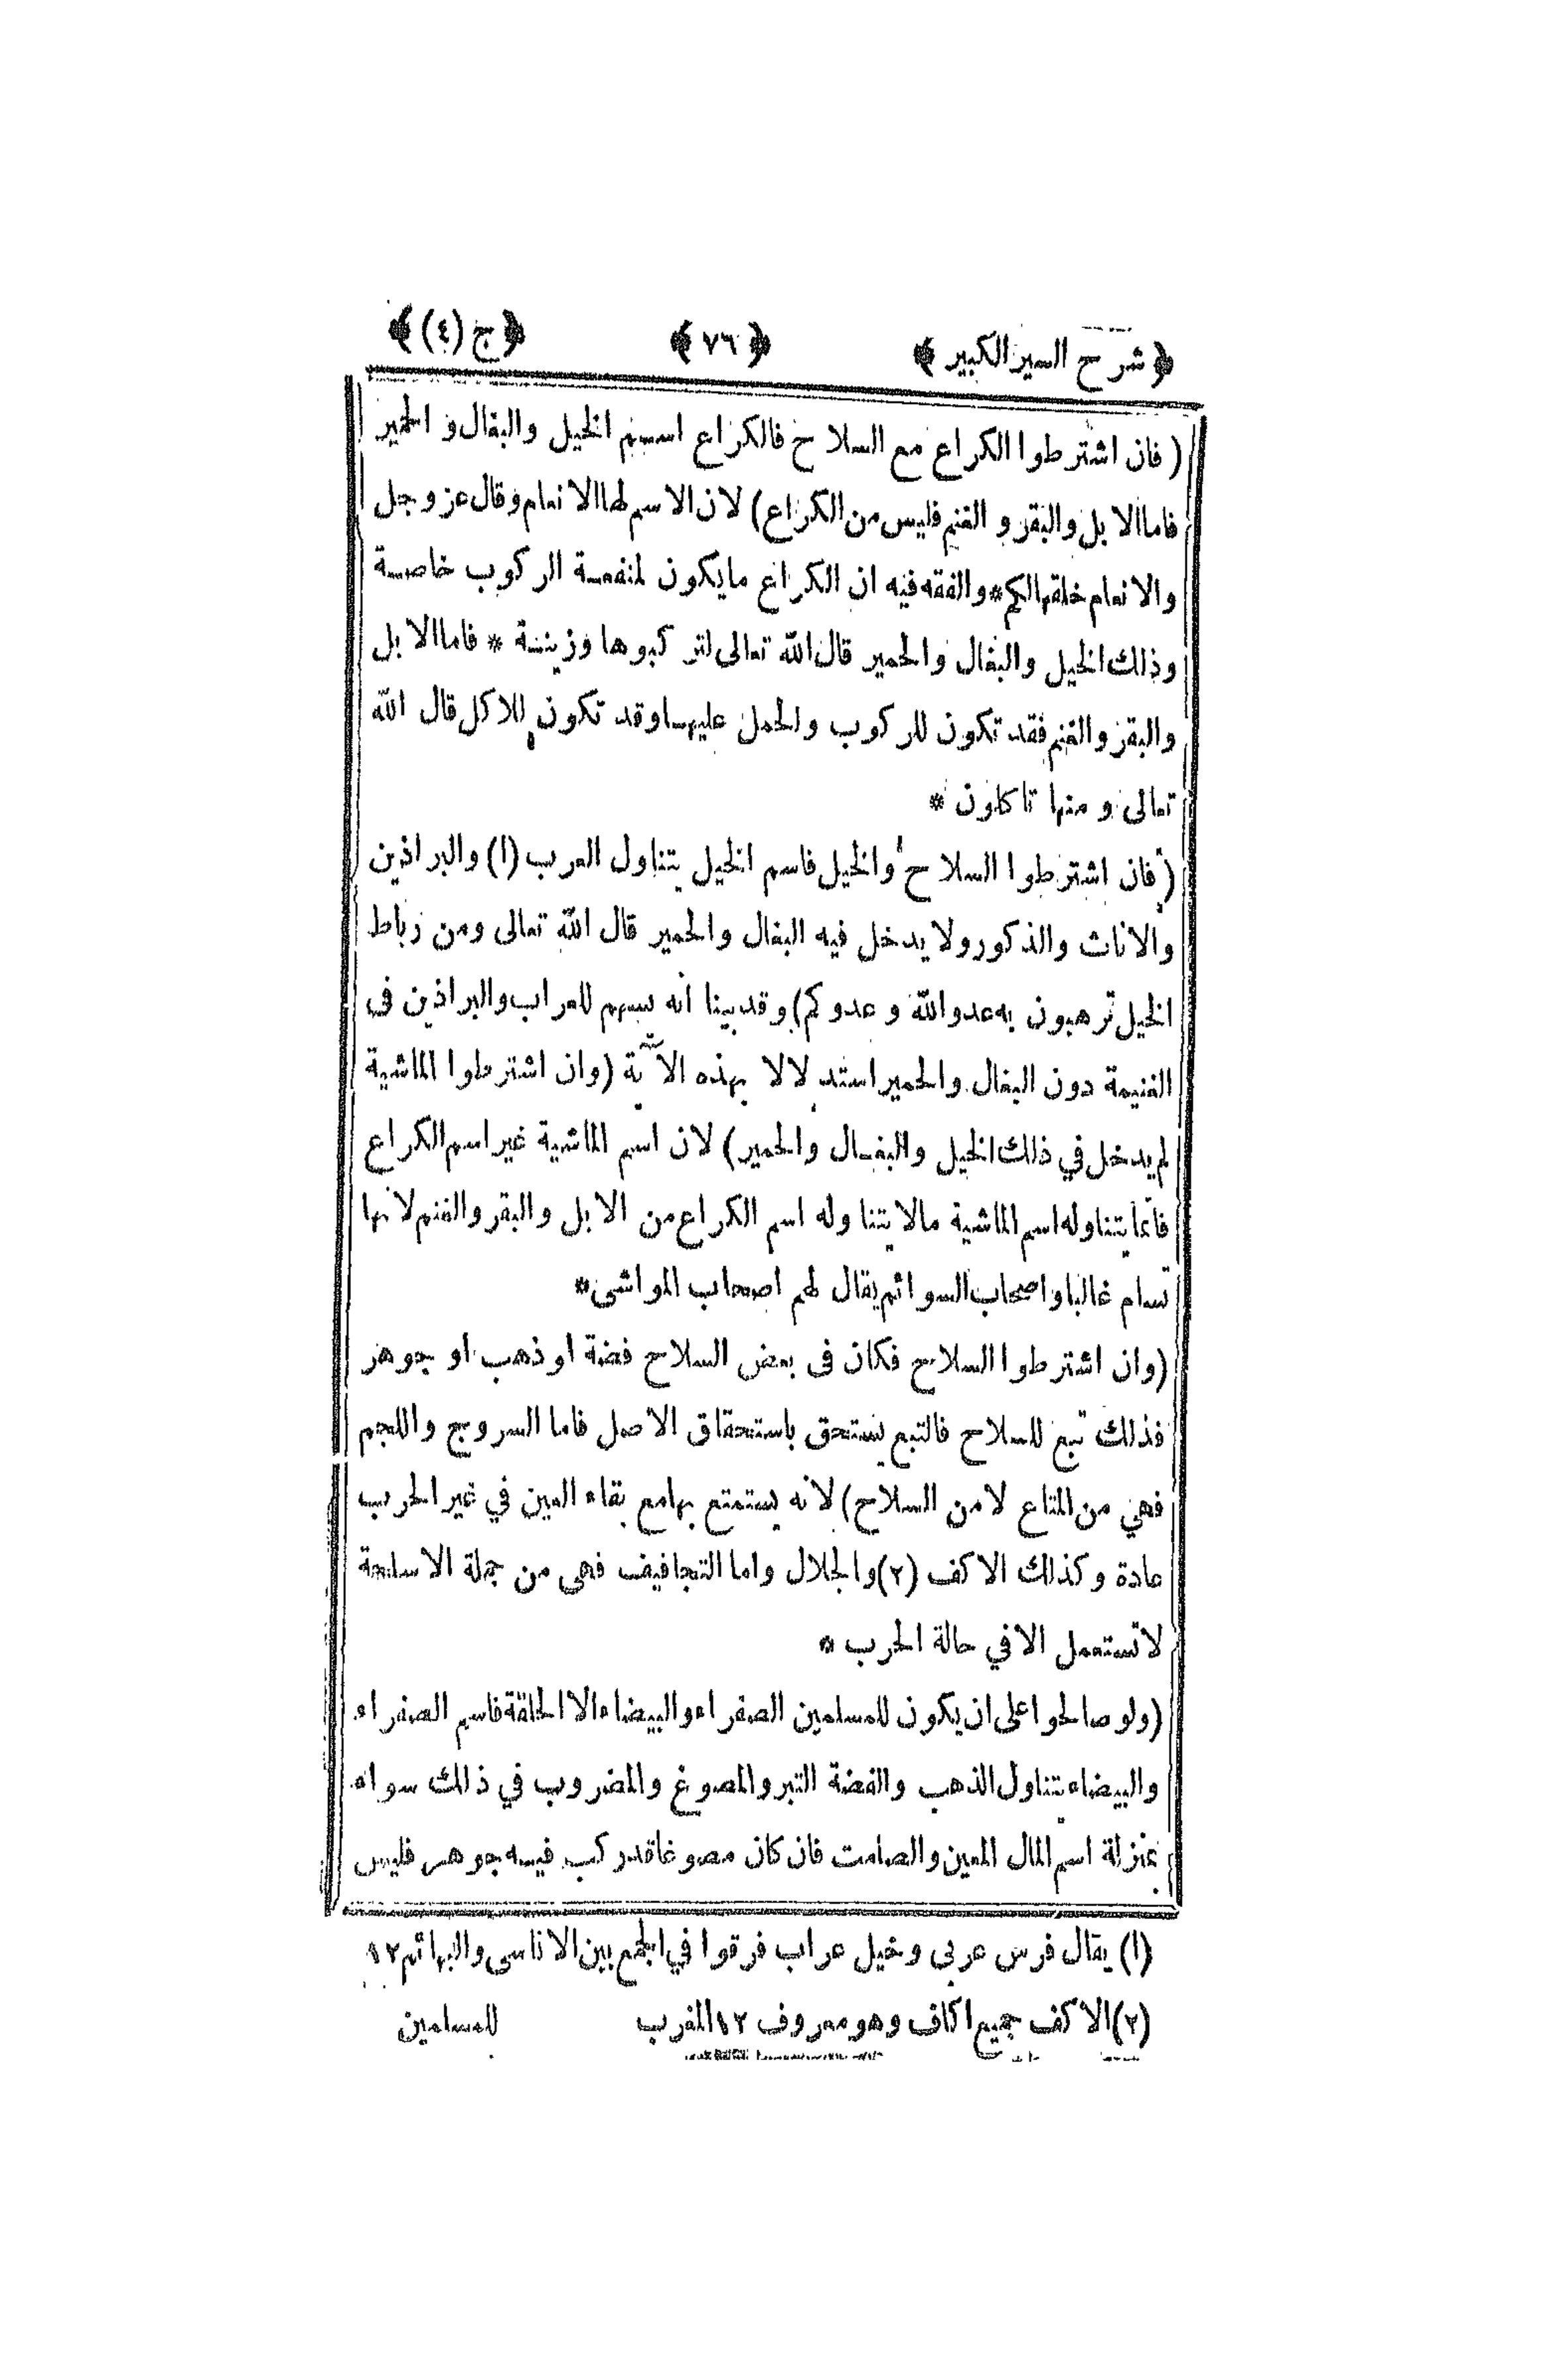 ﴿ شرح السير الكبير ﴾ ﴿ ٧٦ ﴾ ﴿ ج (٤) ﴾
( فان اشترطوا الكراع مع السلاح فالكراع اسم الخيل والبغال و الحمير
فاما الابل والبقر و الغنم فليس من الكراع) لان الاسم لها الانعام وقال عز وجل
والانعام خلقها لكم * والفقه فيه ان الكراع مايكون لمنفعة الركوب خاصة
وذلك الخيل والبغال والحمير قال الله تعالى لتركبوها وزينة * فاما الابل
والبقر والغنم فقد تكون للركوب والحمل عليها وقد تكون للاكل قال الله
تعالى و منها تاكلون *
( فان اشترطوا السلاح والخيل فاسم الخيل يتناول العرب (١) والبراذين
والاناث والذكور ولا يدخل فيه البغال والحمير قال الله تعالى ومن رباط
الخيل ترهبون به عدو الله و عدوكم) وقد بينا انه يسهم للعراب والبراذين فى
الغنيمة دون البغال والحمير استدلالا بهذه الآية (وان اشترطوا الماشية
لم يدخل في ذلك الخيل والبغال والحمير) لان اسم الماشية غير اسم الكراع
فانما يتناوله اسم الماشية مالا يتناوله اسم الكراع من الابل والبقر والغنم لانها
تسام غالبا واصحاب السوائم يقال لهم اصحاب المواشى *
(وان اشترطوا السلاح فكان فى بعض السلاح فضة او ذهب او جوهر
فذلك تبع للسلاح فالتبع يستحق باستحقاق الاصل فاما السروج واللجم
فهي من المتاع لا من السلاح) لانه يستمتع بها مع بقاء العين في غير الحرب
عادة وكذلك الاكف (٢) والجلال واما التجافيف فهى من جملة الاسلحة
لا تستعمل الا في حالة الحرب *
(ولو صالحوا على ان يكون للمسلمين الصفراء والبيضاء الا الحلقة فاسم الصفراء
والبيضاء يتناول الذهب والفضة التبر والمصوغ والمضروب في ذلك سواء
بمنزلة اسم المال العين والصامت فان كان مصوغا قد ركب فيه جوهر فليس
(١) يقال فرس عربى وخيل عراب فرقوا في الجمع بين الاناسى والبهائم ١٢
(٢) الاكف جميع اكاف وهو معروف ١٢ المغرب للمسلمين